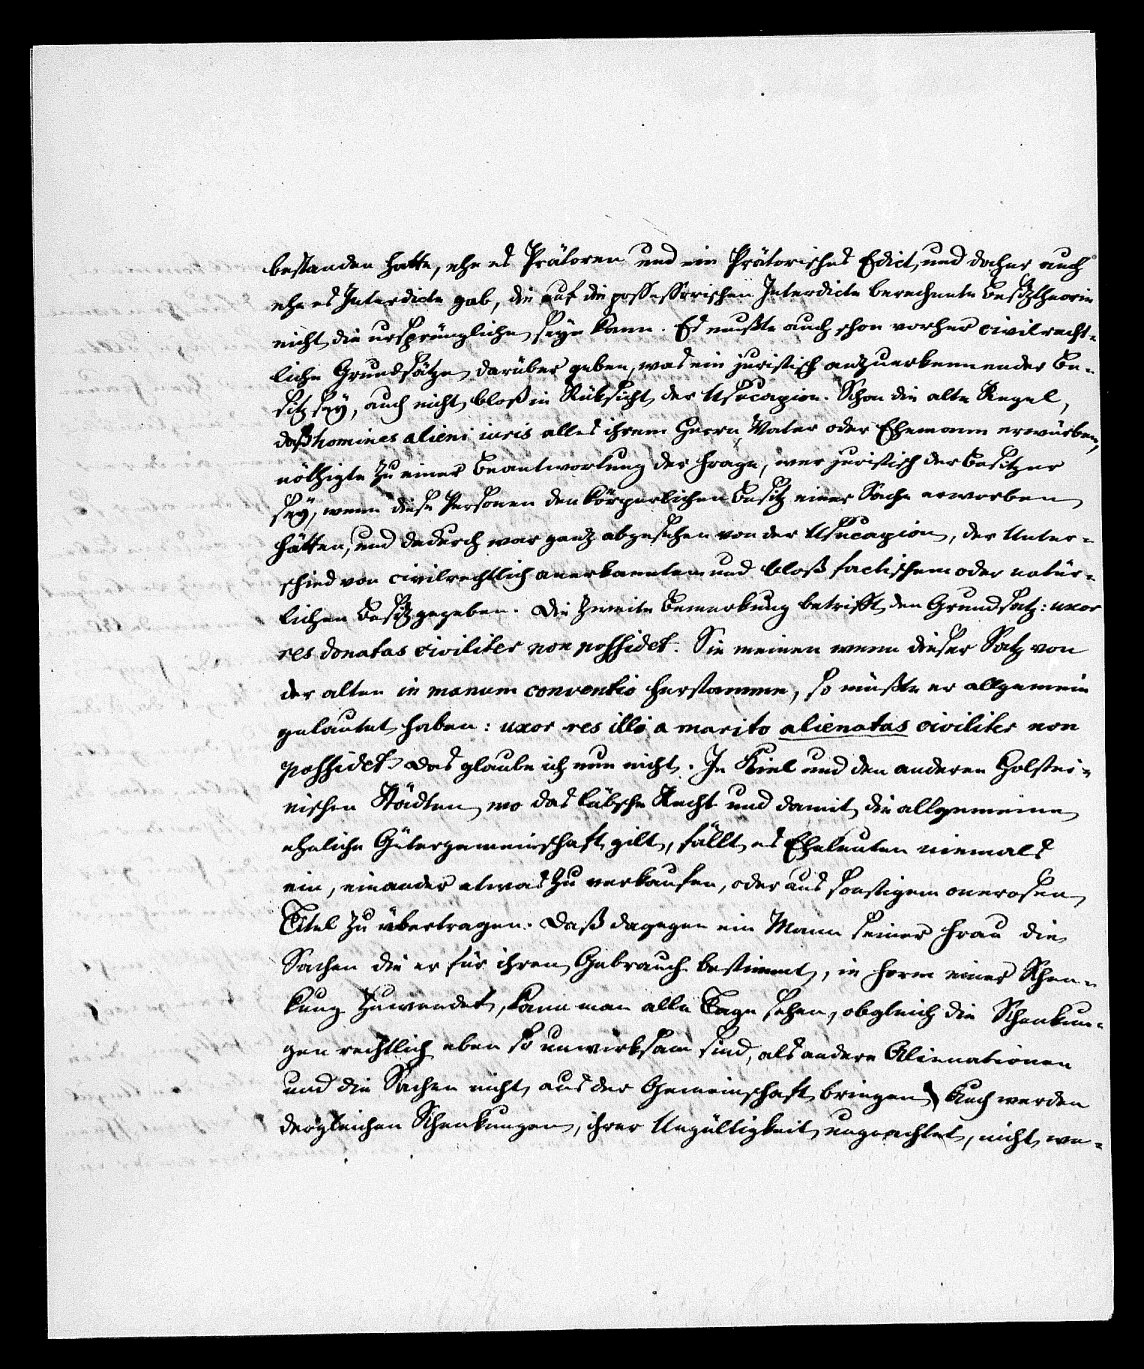 bestanden hatte, ehe es Prätoren und ein Prätorisches Edict, und daher auch
ehe es Interdicte gab, die auf die possessorischen Interdicte berechnete Besitztheorie
nicht die ursprüngliche seyn kann. Es mußte auch schon vorher civilrecht-
liche Grundsätze darüber geben, was ein juristisch anzuerkennender Be-
sitz sey, auch nicht bloß in Rüksicht der Usucapion. Schon die alte Regel,
daß homines alieni iuris alles ihrem Herrn Vater oder Ehemann erwürben,
nöthigte zu einer Beantwortung der Frage, wer juristisch der Besitzer
sey, wenn diese Personen den körperlichen Besitz einer Sache erworben
hätten, und dadurch war ganz abgesehen von der Usucapion, der Unter-
schied von civilrechtlich anerkanntem und bloß factischem oder natür-
lichem Besitz gegeben. Die zweite Bemerkung betrifft den Grundsatz: uxor
res donatas civiliter non possidet. Sie meinen wenn dieser Satz von
der alten in manum conventio herstamme, so müßte er allgemein
gelautet haben: uxor res illi a marito alienatas civiliter non
possidet. Das glaube ich nun nicht. In Kiel und den anderen Holstei-
nischen Städten, wo das Lübsche Recht und damit die allgemeine
eheliche Gütergemeinschaft gilt, fällt es Eheleuten niemals
ein, einander etwas zu verkaufen, oder aus sonstigem onerosen
Titel zu übertragen. Daß dagegen ein Mann seiner Frau die
Sachen die er für ihren Gebrauch bestimmt, in Form einer Schen-
kung zuwendet, kann man alle Tage sehen, obgleich die Schenkun-
gen rechtlich eben so unwirksam sind, als andere Alienationen
und die Sachen nicht aus der Gemeinschaft bringen. Auch werden
dergleichen Schenkungen, ihrer Ungültigkeit ungeachtet, nicht we-